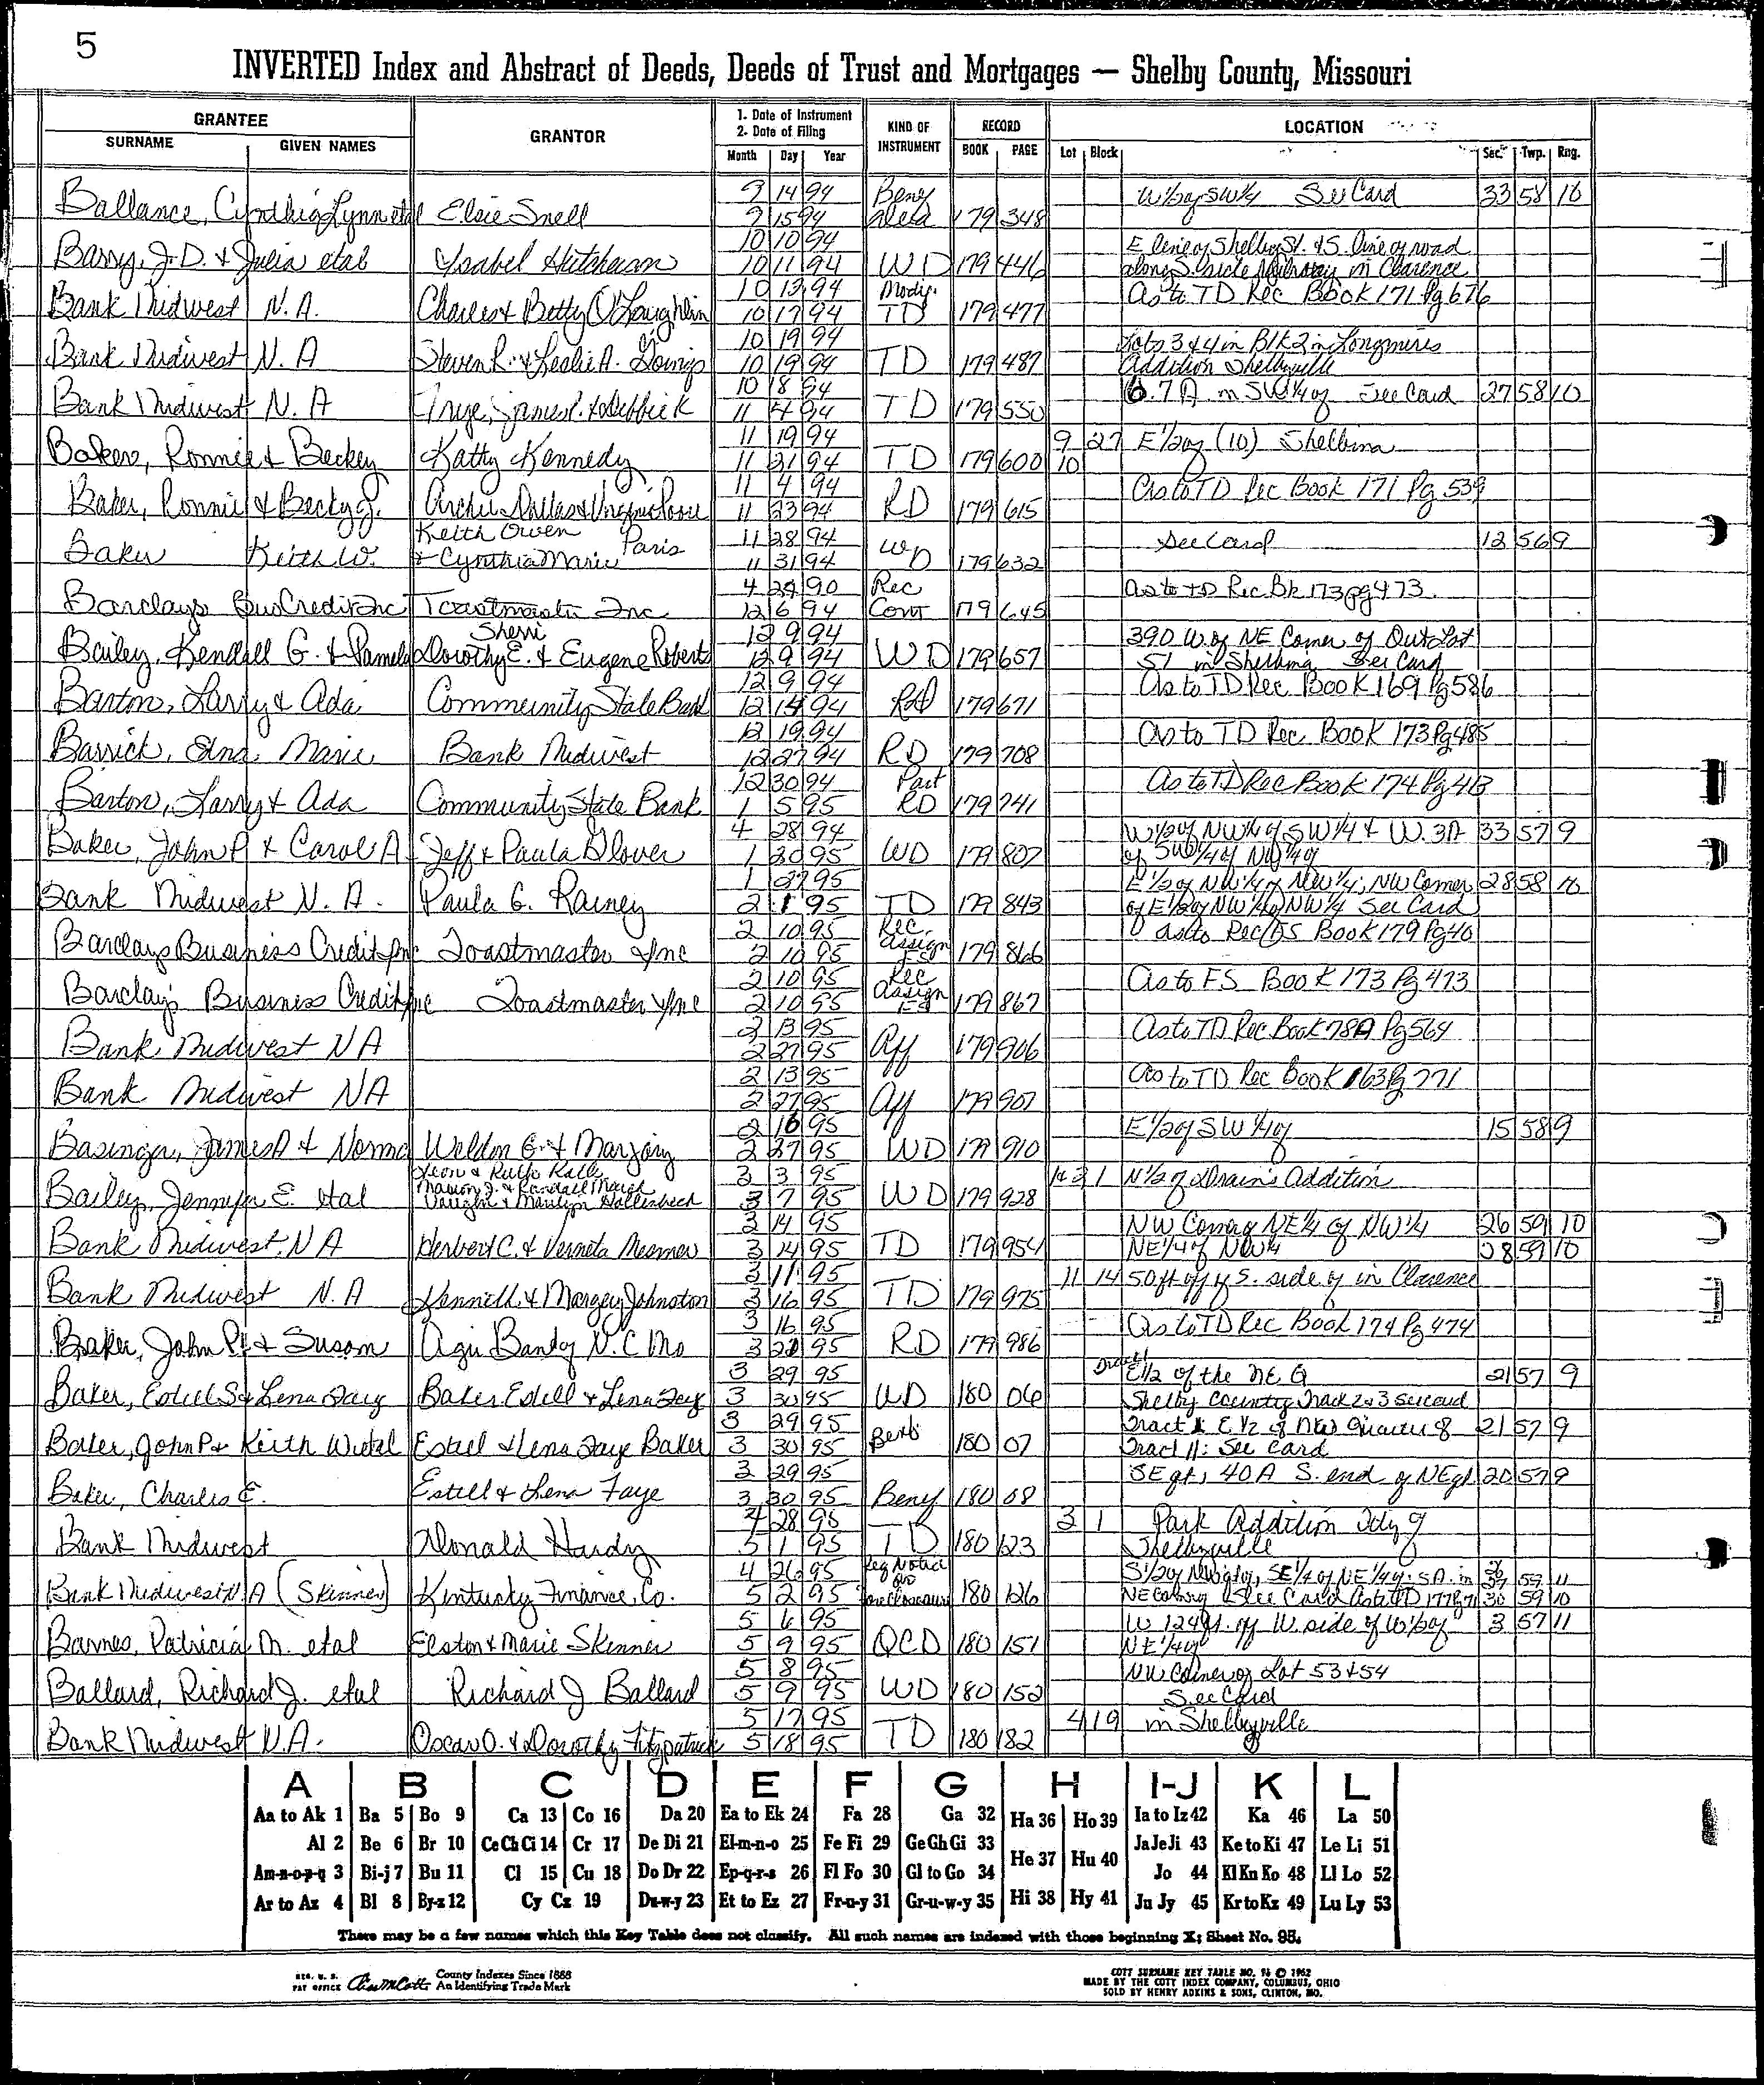 5
INVERTED Index and Abstract of Deeds, Deeds of Trust and Mortgages — Shelby County, Missouri
GRANTEE
SURNAME GIVEN NAMES
GRANTOR
1. Date of Instrument
2. Date of Filing
Month Day Year
KIND OF INSTRUMENT
RECORD
BOOK PAGE
LOCATION
Lot Block Sec. Twp. Rng.
9 14 94 Beny W 1/2 of SW 1/4 See Card 33 58 10
Ballance, Cynthia Lynn etal Elsie Snell 9 15 94 deed 179 348
10 10 94 E line of Shelby St. & S. line of road
Barry, J.D. & Julia etal Ysabel Hutcheson 10 11 94 WD 179 446 along S. side in Clarence
10 13 94 Mody. As to TD Rec Book 171 Pg 676
Bank Midwest N.A. Charles & Betty O'Loughlin 10 17 94 TD 179 477
10 19 94 Lots 3 & 4 in Blk 2 in Longmires
Bank Midwest N.A Steven R. & Leslie A. 10 19 94 TD 179 487 Addition Shelbyville
10 18 94 6.7 A in SW 1/4 of See Card 27 58 10
Bank Midwest N.A James R. & Debbie K 11 4 94 TD 179 550
11 19 94 9 27 E 1/2 of (10) Shelbina
Bakers, Ronnie & Beckey Kathy Kennedy 11 21 94 TD 179 600 10
11 4 94 As to TD Rec Book 171 Pg 539
Baker, Ronnie & Becky J. Archie Dallas & Virginia 11 23 94 RD 179 615
Keith Owen Paris 11 28 94 See Card 12 56 9
Baker Keith W. & Cynthia Marie 11 31 94 WD 179 632
4 24 90 Rec As to TD Rec Bk 173 pg 473
Barclays Bus Credit Inc Toastmaster Inc 12 6 94 Cont 179 645
Sherri 12 9 94 390 W of NE Corner of Out Lot
Bailey, Kendall G. & Pamela Dorothy E. & Eugene Roberts 12 9 94 WD 179 657 51 in Shelbina See Card
12 9 94 As to TD Rec Book 169 Pg 586
Barton, Larry & Ada Community State Bank 12 14 94 RD 179 671
12 19 94 As to TD Rec Book 173 Pg 485
Barrick, Edna Marie Bank Midwest 12 27 94 RD 179 708
12 30 94 Part As to TD Rec Book 174 Pg 413
Barton, Larry & Ada Community State Bank 1 5 95 RD 179 741
4 28 94 W 1/2 of NW 1/4 of SW 1/4 & W. 3A 33 57 9
Baker, John P & Carol A Jeff & Paula Glover 1 30 95 WD 179 807 of SW 1/4 of NW 1/4 of
1 27 95 E 1/2 of NW 1/4 of NW 1/4; NW Corner 28 58 10
Bank Midwest N.A. Paula G. Rainey 2 1 95 TD 179 843 of E 1/2 of NW 1/4 of NW 1/4 See Card
2 10 95 Rec. As to Rec FS Book 179 Pg 40
Barclays Business Credit Inc Toastmaster Inc 2 10 95 Assign FS 179 866
2 10 95 Rec As to FS Book 173 Pg 473
Barclay's Business Credit Inc Toastmaster Inc 2 10 95 Assign FS 179 867
2 13 95 As to TD Rec Book 78A Pg 564
Bank Midwest NA 2 27 95 Aff 179 906
2 13 95 As to TD Rec Book 163 Pg 771
Bank Midwest NA 2 27 95 Aff 179 907
2 16 95 E 1/2 of SW 1/4 of 15 58 9
Basinger, James A & Norma Weldon G. & Marjory 2 27 95 WD 179 910
Leon & Ruth 3 3 95 1 N 1/2 of Drain's Addition
Marion J. & Randall
Bailey, Jennifer E. etal Vaughn & Marilyn Hollenbeck 3 7 95 WD 179 928
3 14 95 NW Corner of NE 1/4 of NW 1/4 26 59 10
Bank Midwest NA Herbert C. & Verneta Mesmer 3 14 95 TD 179 954 NE 1/4 of NW 1/4 28 59 10
3 11 95 11 14 50 ft off of S. side of in Clarence
Bank Midwest N.A Kenneth & Margey Johnston 3 16 95 TD 179 975
3 16 95 As to TD Rec Book 174 Pg 474
Baker, John P. & Susan Agri Bank of N.C Mo 3 20 95 RD 179 986
3 29 95 Tract 1 E 1/2 of the NE Q 21 57 9
Baker, Estell S & Lena Faye Baker Estell & Lena Faye 3 30 95 WD 180 06 Shelby Country Track 2 & 3 See card
3 29 95 Tract I: E 1/2 of NW Quarter of 21 57 9
Baker, John P & Keith W etal Estell & Lena Faye Baker 3 30 95 Benf 180 07 Tract II: See Card
3 29 95 SE qt, 40A S. end of NE qt 20 57 9
Baker, Charles E. Estell & Lena Faye 3 30 95 Beny 180 08
4 28 95 3 1 Park Addition City of
Bank Midwest Donald Hardy 5 1 95 TD 180 123 Shelbyville
4 26 95 Req Notice S 1/2 of NW 1/4 of, SE 1/4 of NE 1/4 of: 5A. in 59 11
Bank Midwest N.A (Skinner) Kentucky Finance, Co. 5 2 95 foreclosure 180 126 NE corner of See Card 30 59 10
5 6 95 W 124 ft. off W. side of W 1/2 of 3 57 11
Barnes, Patricia M. etal Elston & Marie Skinner 5 9 95 QCD 180 151 NE 1/4 of
5 8 95 NW Corner of Lot 53 & 54
Ballard, Richard J. etal Richard J Ballard 5 9 95 WD 180 152 See Card
5 17 95 4 19 in Shelbyville
Bank Midwest N.A. Oscar O. & Dorothy Fitzpatrick 5 18 95 TD 180 182
A B C D E F G H I-J K L
Aa to Ak 1 Ba 5 Bo 9 Ca 13 Co 16 Da 20 Ea to Ek 24 Fa 28 Ga 32 Ha 36 Ho 39 Ia to Iz 42 Ka 46 La 50
Al 2 Be 6 Br 10 Ce Ch Ci 14 Cr 17 De Di 21 El-m-n-o 25 Fe Fi 29 Ge Gh Gi 33 He 37 Hu 40 Ja Je Ji 43 Ke to Ki 47 Le Li 51
Am-n-o-p-q 3 Bi-j 7 Bu 11 Cl 15 Cu 18 Do Dr 22 Ep-q-r-s 26 Fl Fo 30 Gl to Go 34 Jo 44 Kl Kn Ko 48 Ll Lo 52
Ar to Az 4 Bl 8 By-z 12 Cy Cz 19 Du-w-y 23 Et to Ez 27 Fr-u-y 31 Gr-u-w-y 35 Hi 38 Hy 41 Ju Jy 45 Kr to Kz 49 Lu Ly 53
There may be a few names which this Key Table does not classify. All such names are indexed with those beginning X; Sheet No. 95.
REG. U. S. PAT OFFICE
County Indexes Since 1888
An Identifying Trade Mark
COTT SURNAME KEY TABLE NO. 14 © 1962
MADE BY THE COTT INDEX COMPANY, COLUMBUS, OHIO
SOLD BY HENRY ADKINS & SONS, CLINTON, MO.